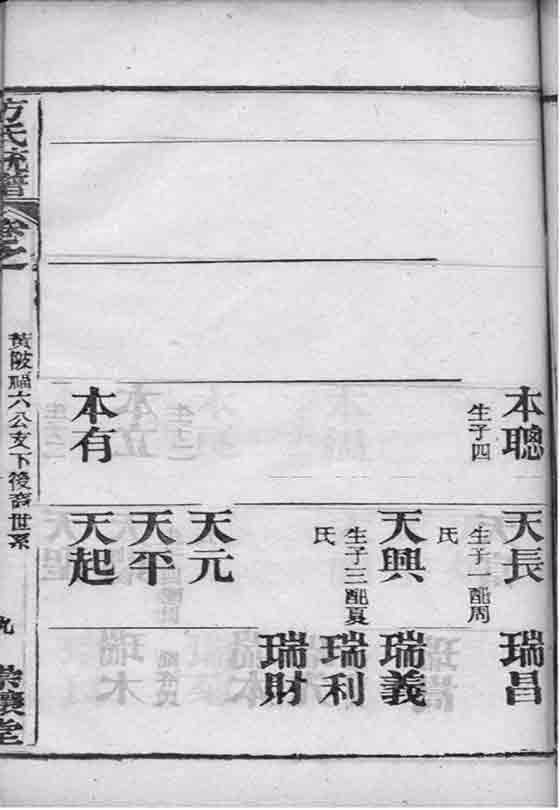 本聰
生子四
本有
天長
生子一配周
氏
天興
生子三配夏
氏
天元
天平
天起
瑞昌
瑞義
瑞利
瑞財
方氏統譜
卷之
黃陂福六公支下後裔世系
九